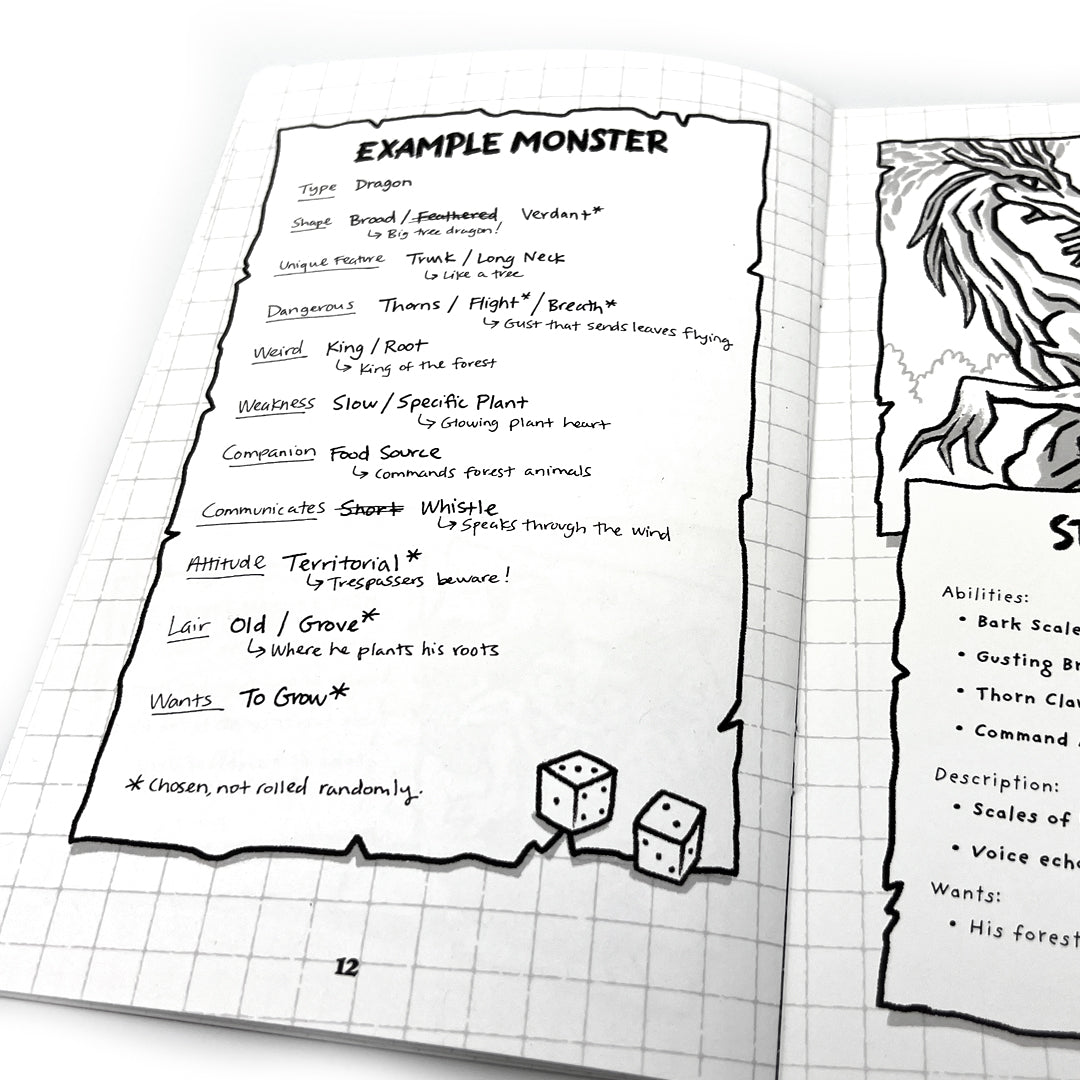 EXAMPLE MONSTER
Type Dragon
Shape Broad / Feathered Verdant*
↳ Big tree dragon!
Unique Feature Trunk / Long Neck
↳ Like a tree
Dangerous Thorns / Flight* / Breath*
↳ Gust that sends leaves flying
Weird King / Root
↳ King of the forest
Weakness Slow / Specific Plant
↳ Glowing plant heart
Companion Food Source
↳ Commands forest animals
Communicates Short Whistle
↳ Speaks through the wind
Attitude Territorial*
↳ Trespassers beware!
Lair Old / Grove*
↳ Where he plants his roots
Wants To Grow*
* Chosen, not rolled randomly.
12
Abilities:
• Bark Scale
• Gusting
• Thorn
• Command
Description:
• Scales of
• Voice
Wants:
• His forest